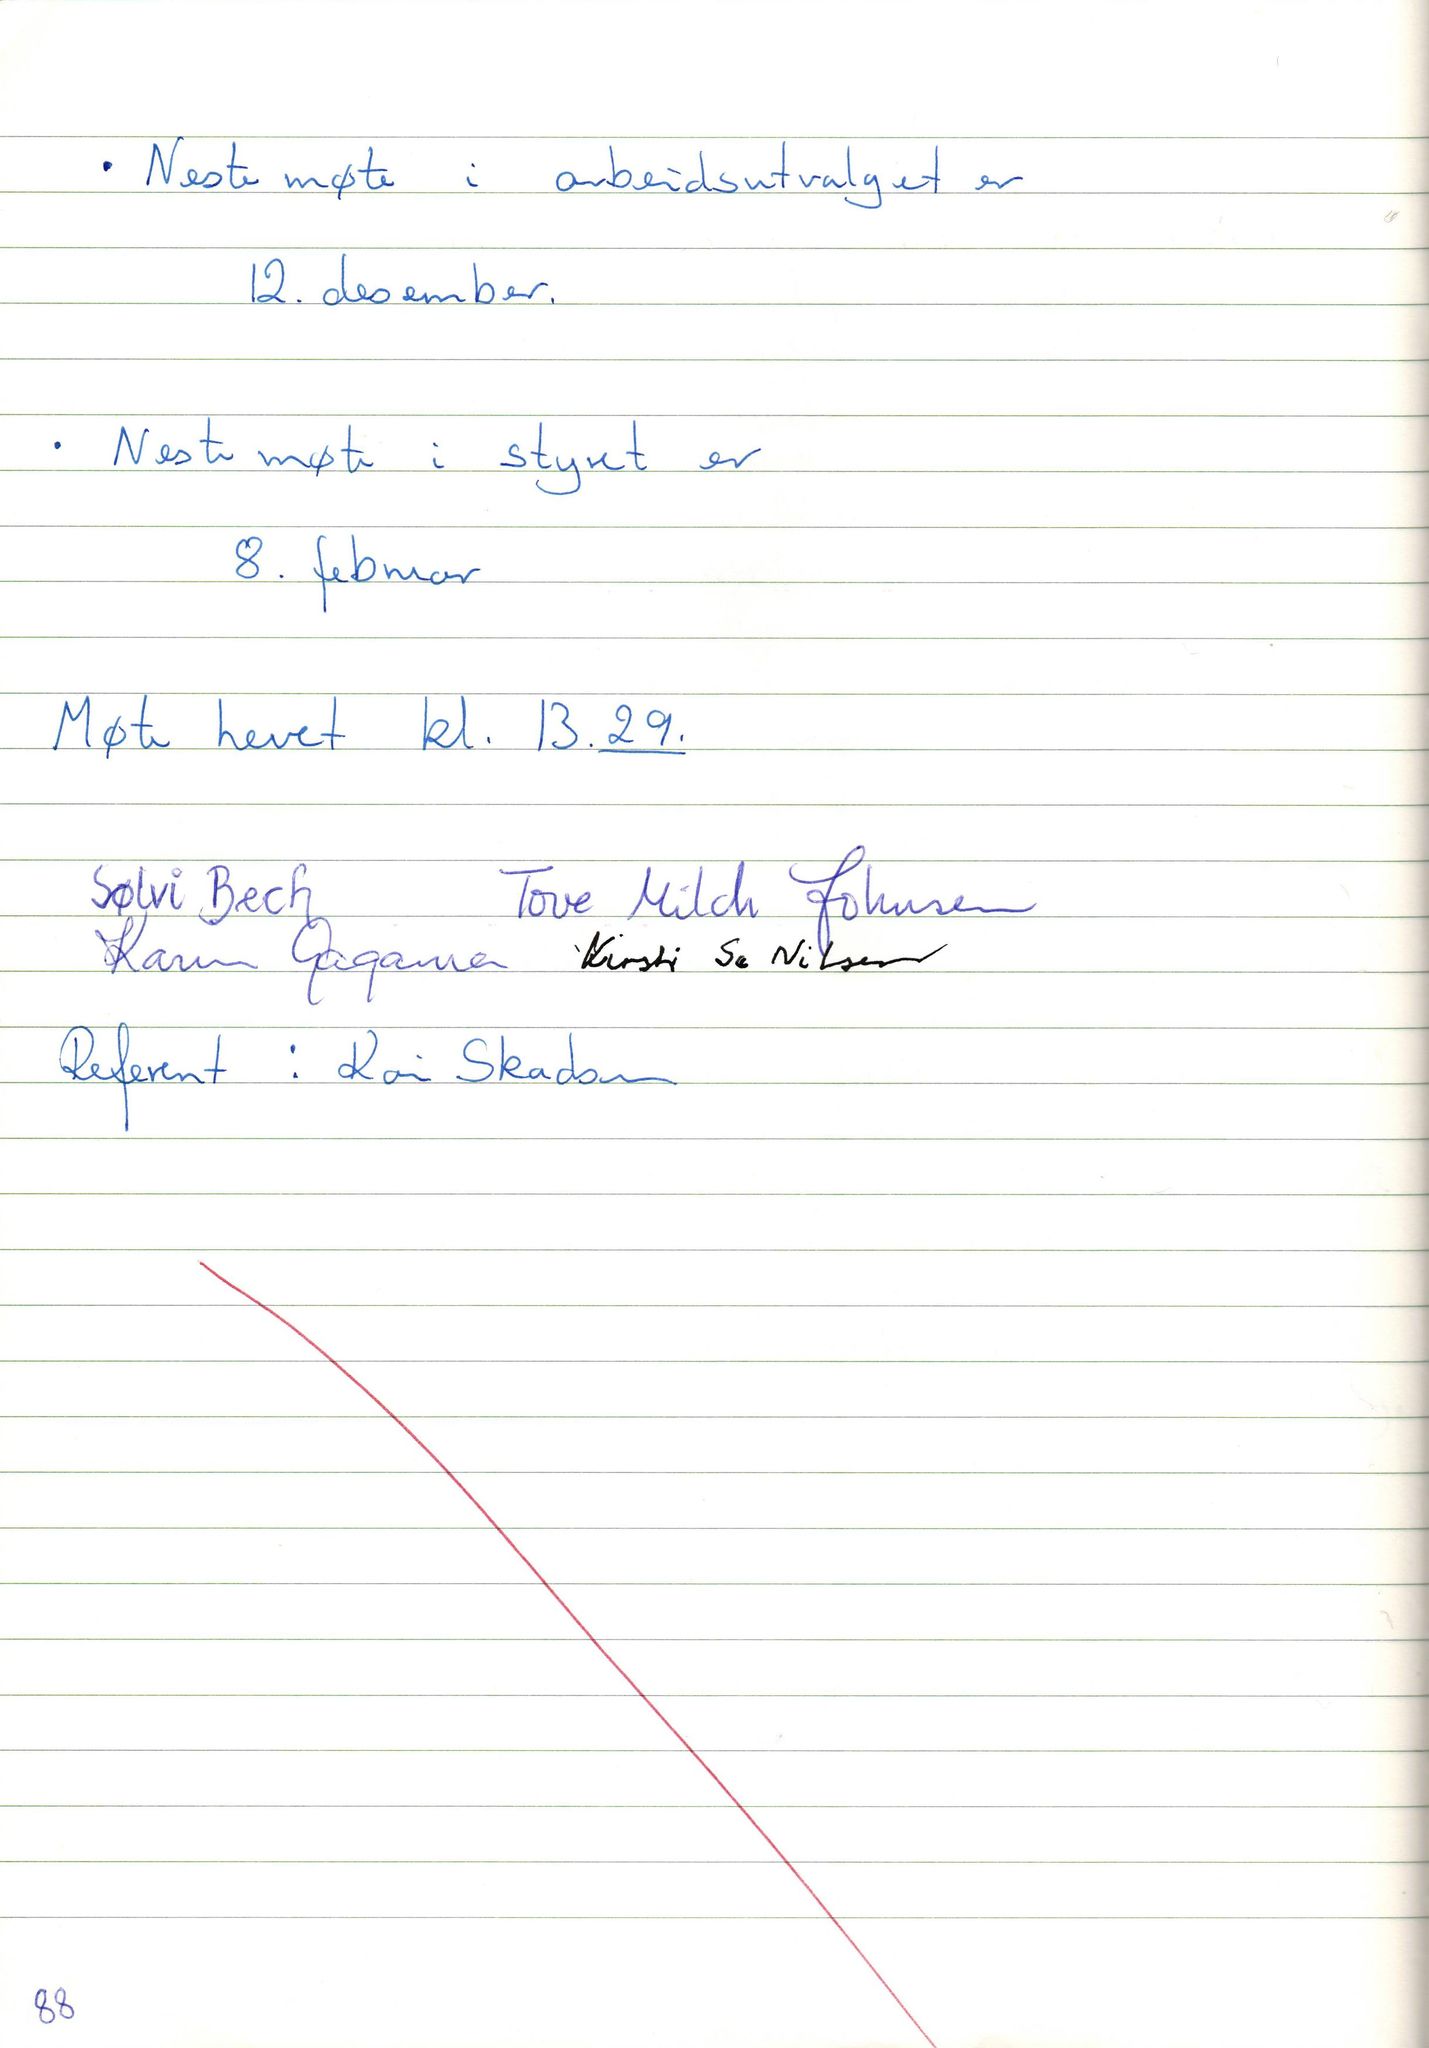 • Neste møte i arbeidsutvalget er
12. desember.
• Neste møte i styret er
8. februar
Møte hevet kl. 13.29.
Sølvi Bech Tove Milch Johnsen
Karin Kirsti Sæ Nilsen
Referent : Kai Skadsem
88